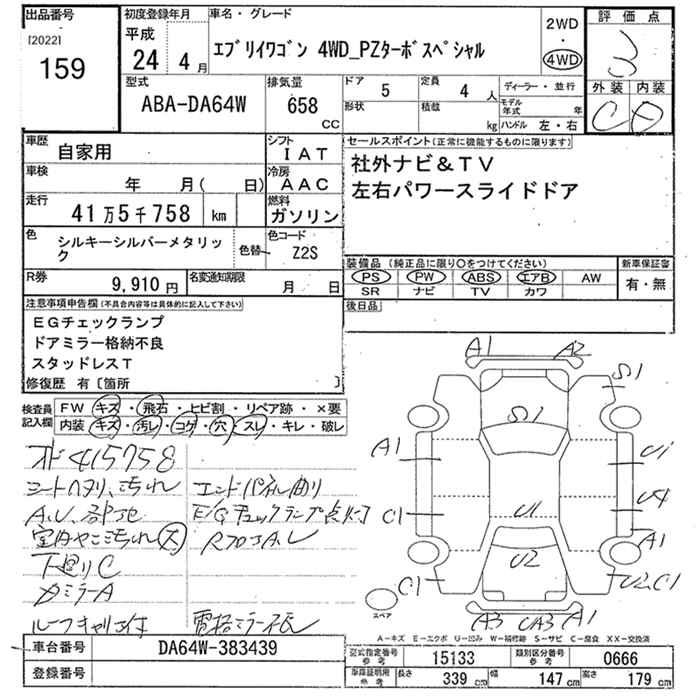 出品番号
[2022]
159
初度登録年月
平成
24 4 月
車名・グレード
エブリイワゴン 4WD_PZターボスペシャル
2WD
・
4WD
評価点
3
外装 内装
C D
型式
ABA-DA64W
排気量
658
CC
ドア
5
定員
4 人
形状
積載
kg
ディーラー・並行
モデル年式 年
ハンドル 左・右
車歴
自家用
シフト
IAT
車検
年 月( 日)
冷房
AAC
走行
41 万 5 千 758 km
燃料
ガソリン
セールスポイント(正常に機能するものに限ります)
社外ナビ&TV
左右パワースライドドア
色
シルキーシルバーメタリック
色替
色コード
Z2S
R券
9,910 円
名変通知期限
月 日
装備品(純正品に限り○をつけてください)
PS PW ABS エアB AW
SR ナビ TV カワ
新車保証書
有・無
後日品
注意事項申告欄(不具合内容等は具体的に記入して下さい)
EGチェックランプ
ドアミラー格納不良
スタッドレスT
修復歴 有〔箇所 〕
検査員記入欄
FW キズ・飛石・ヒビ割・リペア跡・×要
内装 キズ・汚れ・コゲ・穴・スレ・キレ・破レ
415758
シートヘタリ、汚れ
エンドパネル曲り
E/Gチェックランプ点灯
大
下廻りC
ミラーA
A1 A2
S1
S1
A1
U1
C1
U1
U4
A1
U2
C1
U2,C1
A3 UA3 A1
スペア
A-キズ E-エクボ U-凹み W-補修跡 S-サビ C-腐食 XX-交換済
車台番号
DA64W-383439
登録番号
型式指定番号
参考
15133
類別区分番号
参考
0666
車庫証明用
参考
長さ 339 cm 幅 147 cm 高さ 179 cm